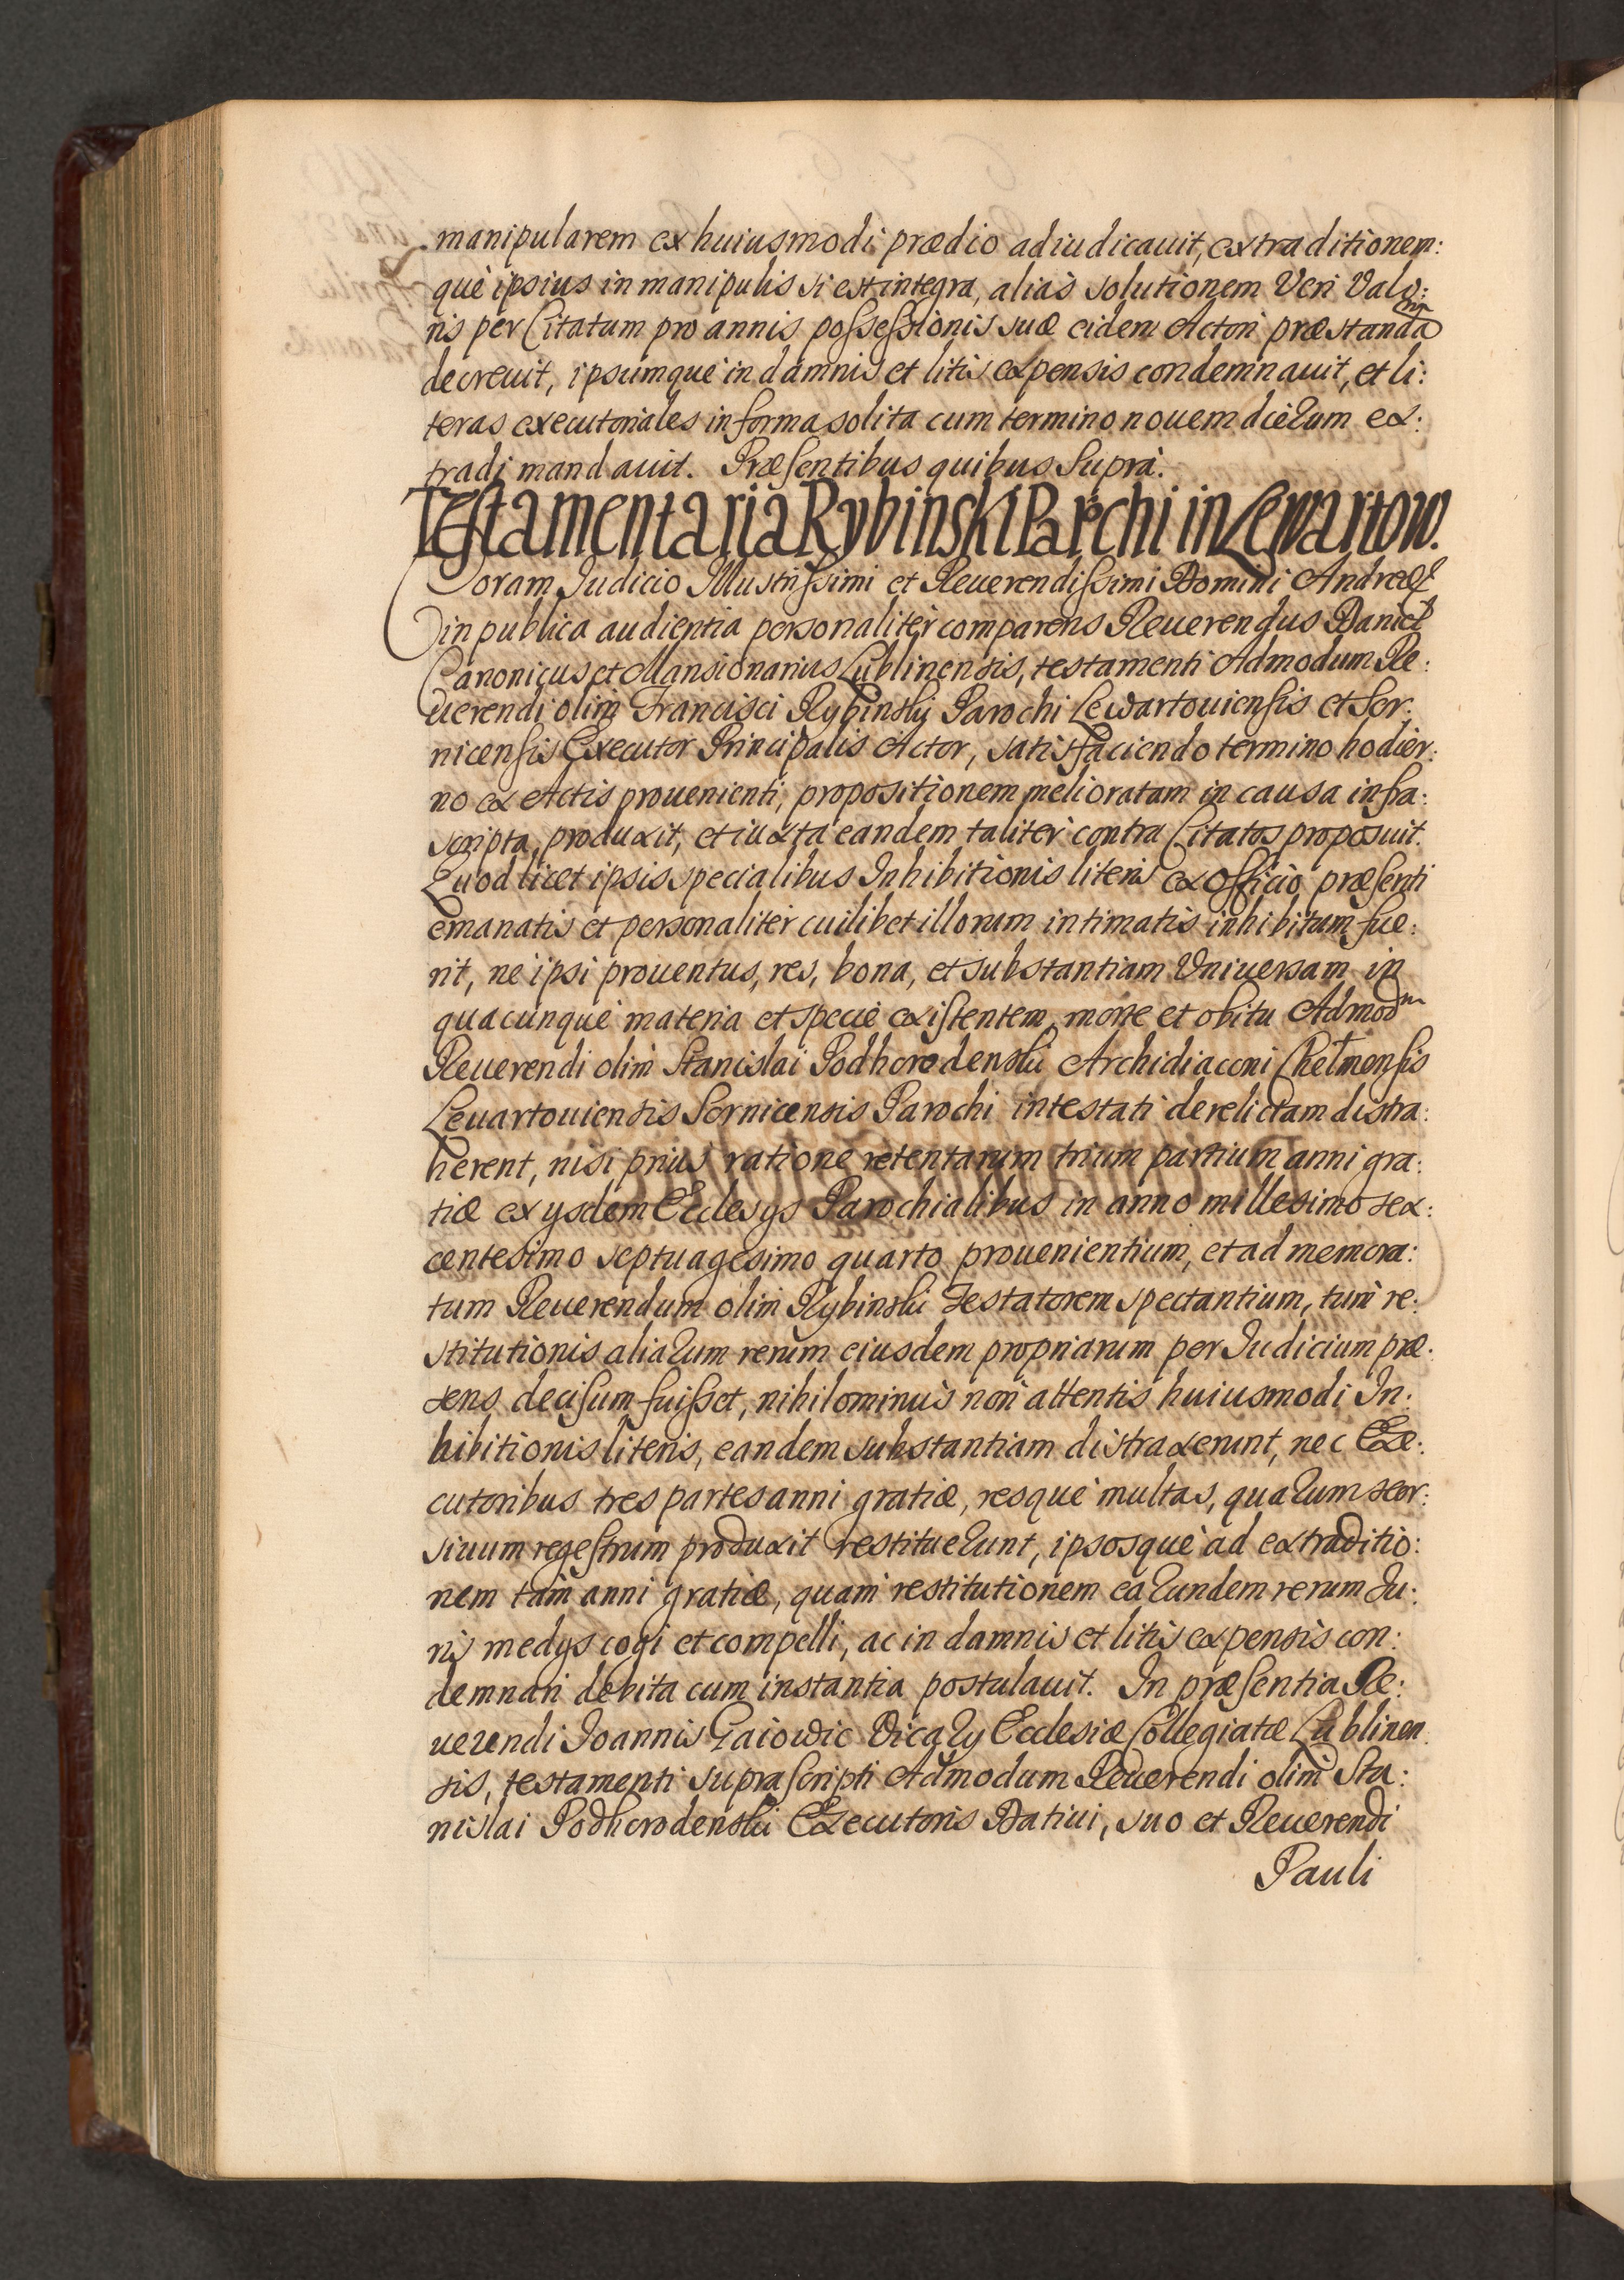 manipularem ex huiusmodi prædio adiudicauit, extraditionem:
què ipsius in manipulis si est integra, aliàs solutionem Veri Valo:
ris per Citatum pro annis possessionis suæ eidem Actori præstandam
decreuit, ipsumquè in damnis et litis expensis condemnauit, et li:
teras executoriales in forma solita cum termino nouem dierum ex:
tradi mandauit. Præsentibus quibus suprà.
Testamentaria Rybinski Parochi in Lewartow.
Coram Judicio Illustrissimi et Reuerendissimi Domini Andreæ
in publica audientia personalitèr comparens Reuerendus Daniel
Canonicus et Mansionarius Lublinensis, testamenti Admodum Re:
uerendi olim Francisci Rybinskÿ Parochi Lewartouiensis et Ser:
nicensis Executor Principalis Actor, satisfaciendo termino hodier:
no ex Actis prouenienti, propositionem melioratam in causa infra:
scripta, produxit, et iuxta eandem talitèr contra Citatos proposuit.
Quod licet ipsis specialibus Inhibitionis literis ex Officio præsenti
emanatis et personalitèr cuilibet illorum intimatis inhibitum fue:
rit, nè ipsi prouentus, res, bona, et substantiam Vniuersam in
quacunquè materia et speciè existentem, morte et obitu Admodm
Reuerendi olim Stanislai Podhorodenskii Archidiaconi Chełmensis
Leuartouiensis Sernicensis Parochi intestati derelictam distra:
herent, nisi priùs ratione retentarum trium partium anni gra:
tiæ ex ysdem Ecclesys Parochialibus in anno millesimo sex:
centesimo septuagesimo quarto prouenientium, et ad memora:
tum Reuerendum olim Rybinskii Testatorem spectantium, tum re:
stitutionis aliarum rerum eiusdem propriarum per Judicium præ:
sens decisum fuisset, nihilominùs non attentis huiusmodi In:
hibitionis literis, eandem substantiam distraxerunt, nec Exe:
cutoribus tres partes anni gratiæ, resquè multas, quarum seor:
siuum regestrum produxit restituerunt, ipsosquè ad extraditio:
nem tam anni gratiæ, quam restitutionem earundem rerum Ju:
ris medys cogi et compelli, ac in damnis et litis expensis con:
demnari debita cum instantia postulauit. In præsentia Re:
uerendi Joannis Gaiowic Vicary Ecclesiæ Collegiatæ Lublinen
sis, testamenti suprascripti Admodum Reuerendi olim Sta:
nislai Podhorodenskii Executoris Datiui, suo et Reuerendi
Pauli